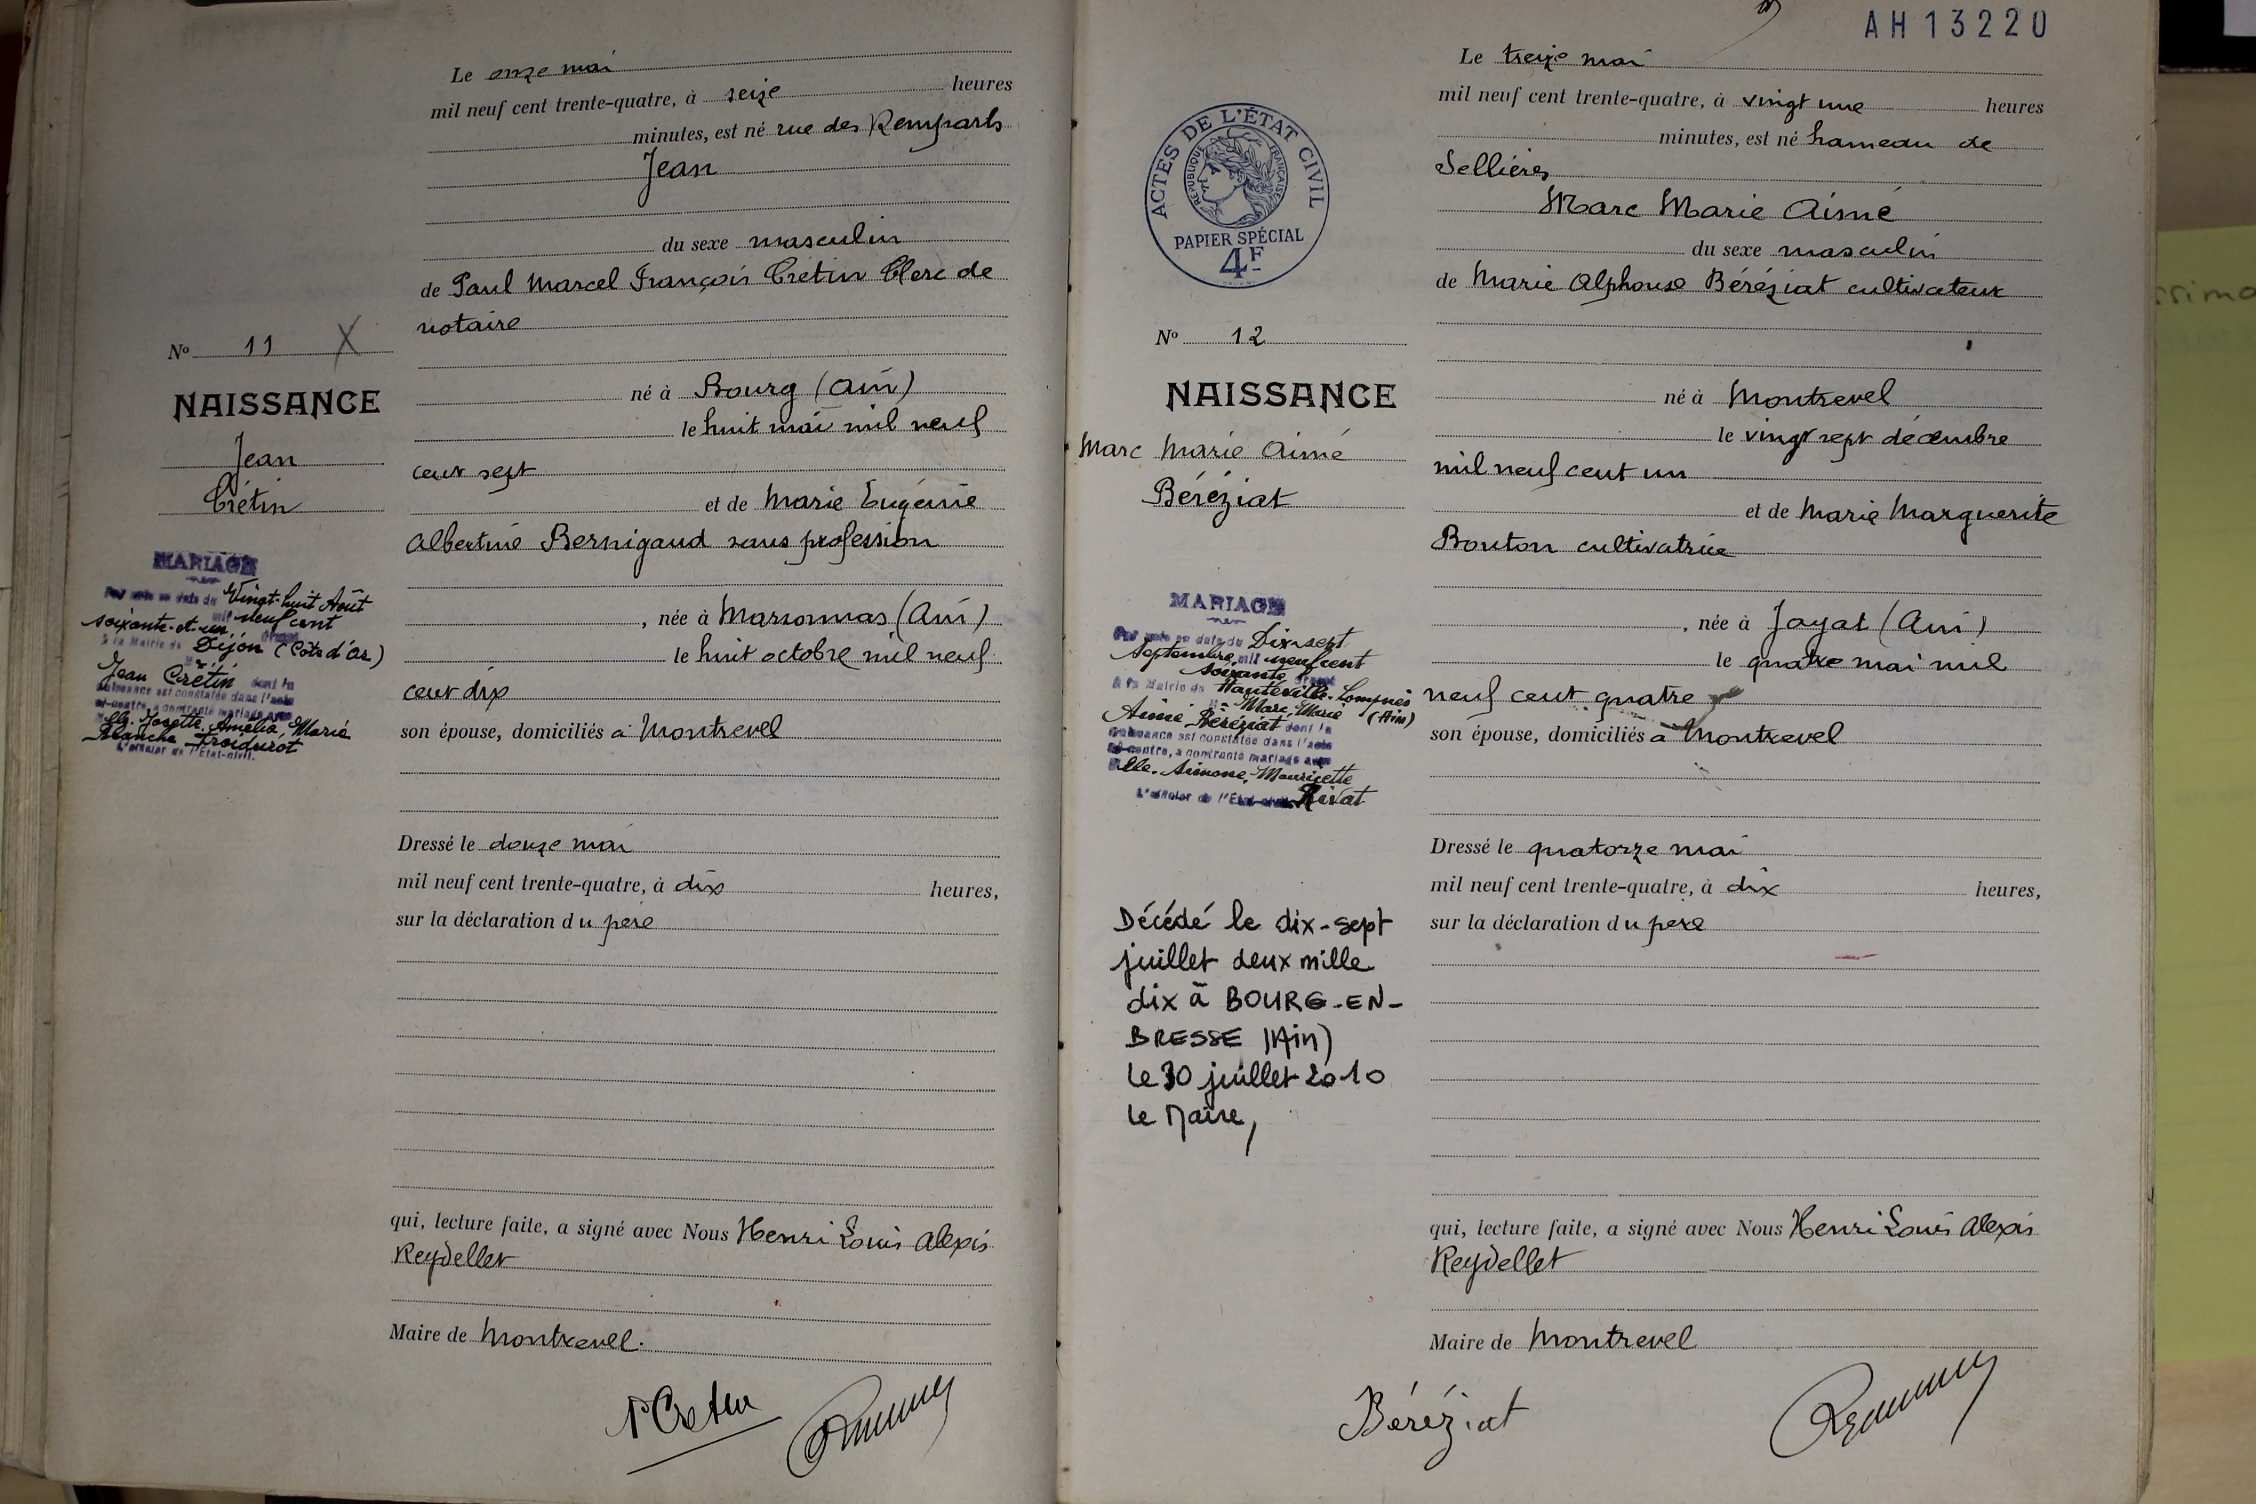 Le onze mai
mil neuf cent trente-quatre, à seize heures
minutes, est né rue des Remparts
Jean
du sexe masculin
de Paul Marcel François Crétin Clerc de
notaire
né à Bourg (Ain)
le huit mai mil neuf
cent sept
et de Marie Eugénie
Albertine Bernigaud sans profession
, née à Marsonnas (Ain)
le huit octobre mil neuf
cent dix
son épouse, domiciliés à Montrevel
Dressé le douze mai
mil neuf cent trente-quatre, à dix heures,
sur la déclaration du père
qui, lecture faite, a signé avec Nous Henri Louis Alexis
Reydellet
Maire de Montrevel.
P Cretin
No 11 X
NAISSANCE
Jean
Crétin
MARIAGE
Par acte en date du Vingt-huit Août
mil neuf cent
soixante-et-un,
à la Mairie de Dijon (Côte d'Or)
Jean Crétin dont la
naissance est constatée dans l'acte
ci-contre, a contracté mariage avec
Mlle. Josette, Amélia, Marie
Blanche Froidurot
L'officier de l'État-civil.
AH13220
ACTES DE L'ÉTAT CIVIL
RÉPUBLIQUE FRANÇAISE
PAPIER SPÉCIAL
4F
No 12
NAISSANCE
Marc Marie Aimé
Béréziat
MARIAGE
Par acte en date du Dix-sept
Septembre, mil neuf cent
soixante
à la Mairie de Hauteville-Lompnès
Mr Marc, Marie (Ain)
Aimé Béréziat dont la
naissance est constatée dans l'acte
ci-contre, a contracté mariage avec
Mlle. Simone, Mauricette
L'officier de l'État-civil Rivat
Décédé le dix-sept
juillet deux mille
dix à BOURG-EN-
BRESSE (Ain)
le 30 juillet 2010
le Maire,
Le treize mai
mil neuf cent trente-quatre, à vingt une heures
minutes, est né hameau de
Sellières
Marc Marie Aimé
du sexe masculin
de Marie Alphonse Béréziat cultivateur
né à Montrevel
le vingt sept décembre
mil neuf cent un
et de Marie Marguerite
Bouton cultivatrice
, née à Jayat (Ain)
le quatre mai mil
neuf cent quatre
son épouse, domiciliés à Montrevel
Dressé le quatorze mai
mil neuf cent trente-quatre, à dix heures,
sur la déclaration du père
qui, lecture faite, a signé avec Nous Henri Louis Alexis
Reydellet
Maire de Montrevel
Béréziat